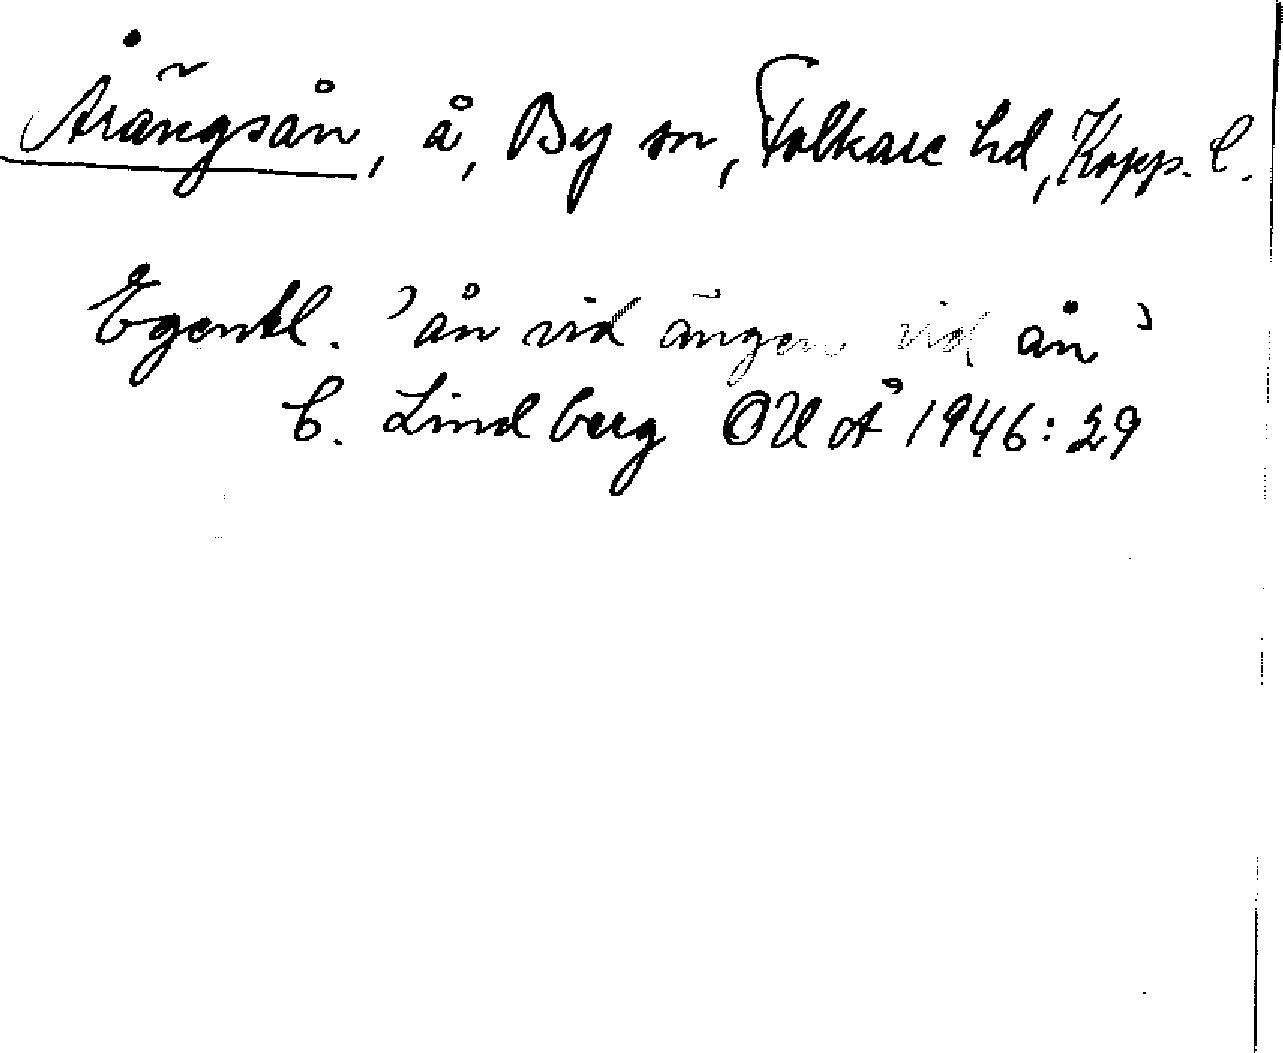 Årängsån, å, By sn, Folkare hd, Kopp. l.
Egentl. 'ån vid ängen vid ån'
C. Lindberg OUÅ 1946:29